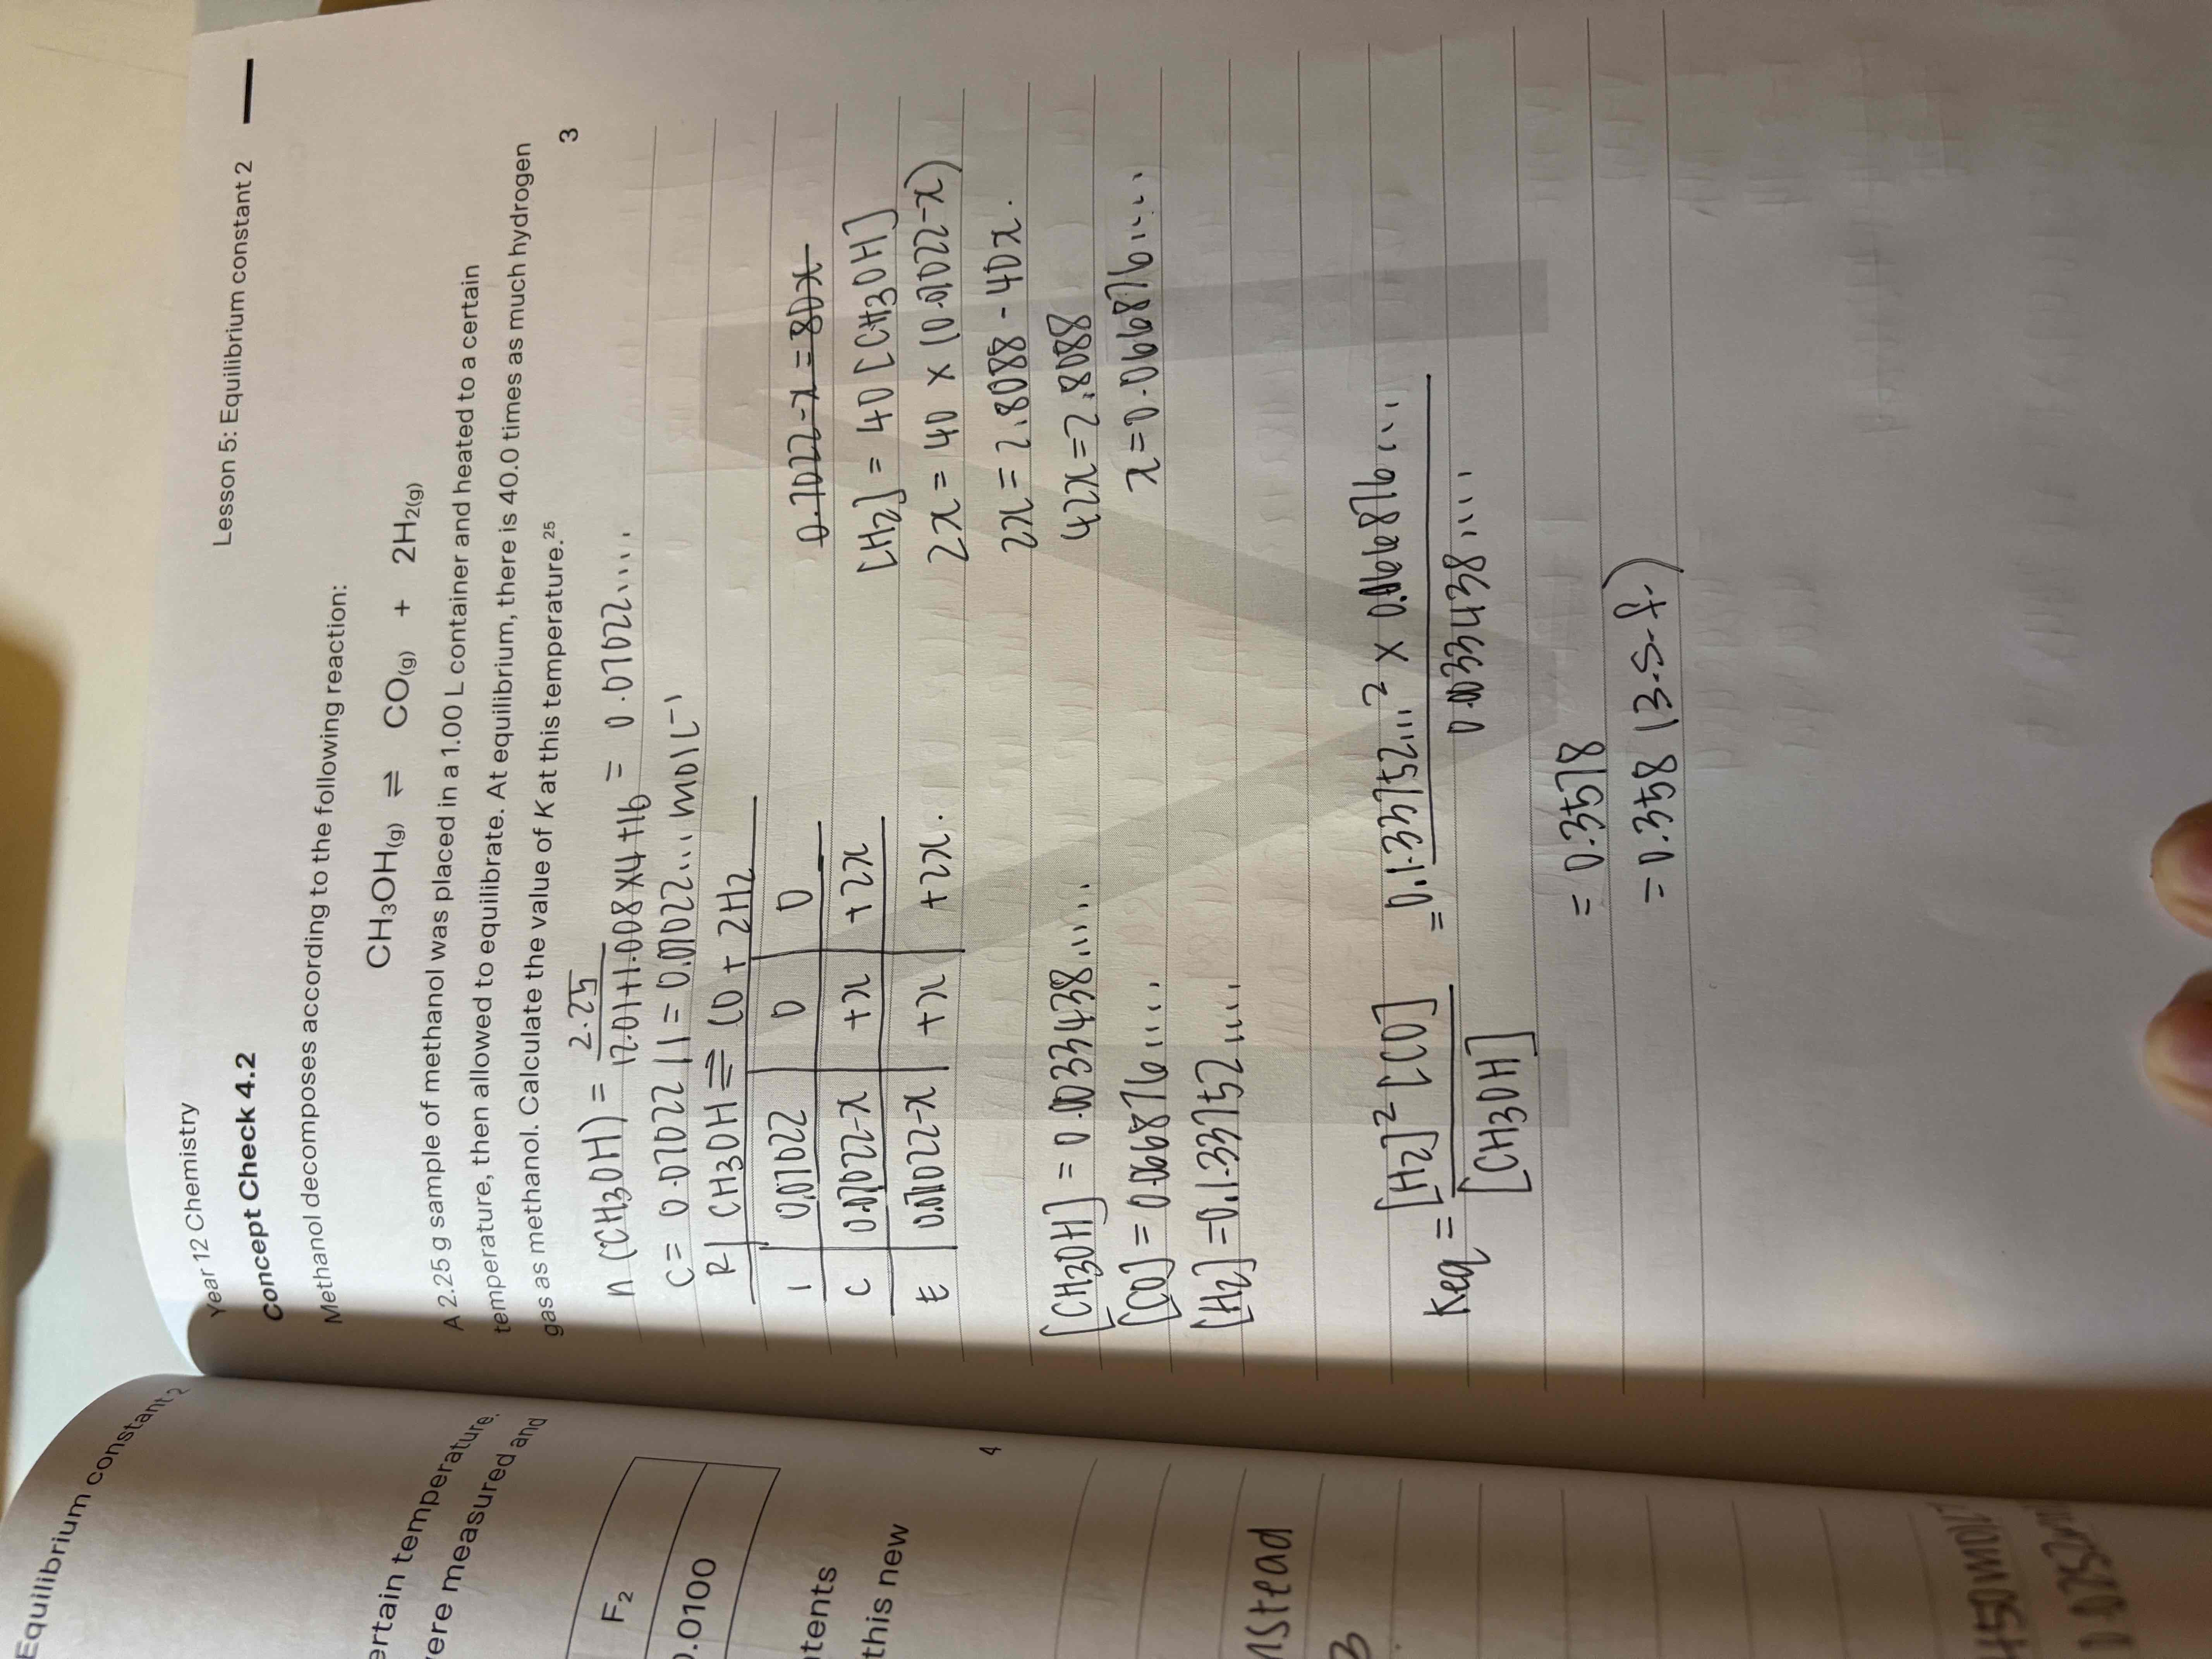 Equilibrium constant 2
ertain temperature.
vere measured and
F₂
0.0100
ntents
this new
4
nstead
3
Year 12 Chemistry
Lesson 5: Equilibrium constant 2
Concept Check 4.2
Methanol decomposes according to the following reaction:
CH₃OH(g) ⇌ CO(g) + 2H₂(g)
A 2.25 g sample of methanol was placed in a 1.00 L container and heated to a certain
temperature, then allowed to equilibrate. At equilibrium, there is 40.0 times as much hydrogen
gas as methanol. Calculate the value of K at this temperature.²⁵
3
n(CH3OH) = 2.25 / 12.01+1.008×4+16 = 0.07022....
C = 0.07022 / 1 = 0.07022.... mol L⁻¹
R | CH3OH ⇌ CO + 2H2
I | 0.07022 | 0 | 0
C | 0.07022-x | +x | +2x
E | 0.07022-x | +x | +2x.
0.7022-x=80x
[H2] = 40[CH3OH]
2x = 40 × (0.07022-x)
2x = 2.8088 - 40x.
42x = 2.8088
x = 0.066876....
[CH3OH] = 0.0033438.....
[CO] = 0.066876....
[H2] = 0.133752....
Keq = [H2]² [CO] / [CH3OH] = 0.133752...² × 0.066876... / 0.0033438....
= 0.3578
= 0.358 (3.s.f.)